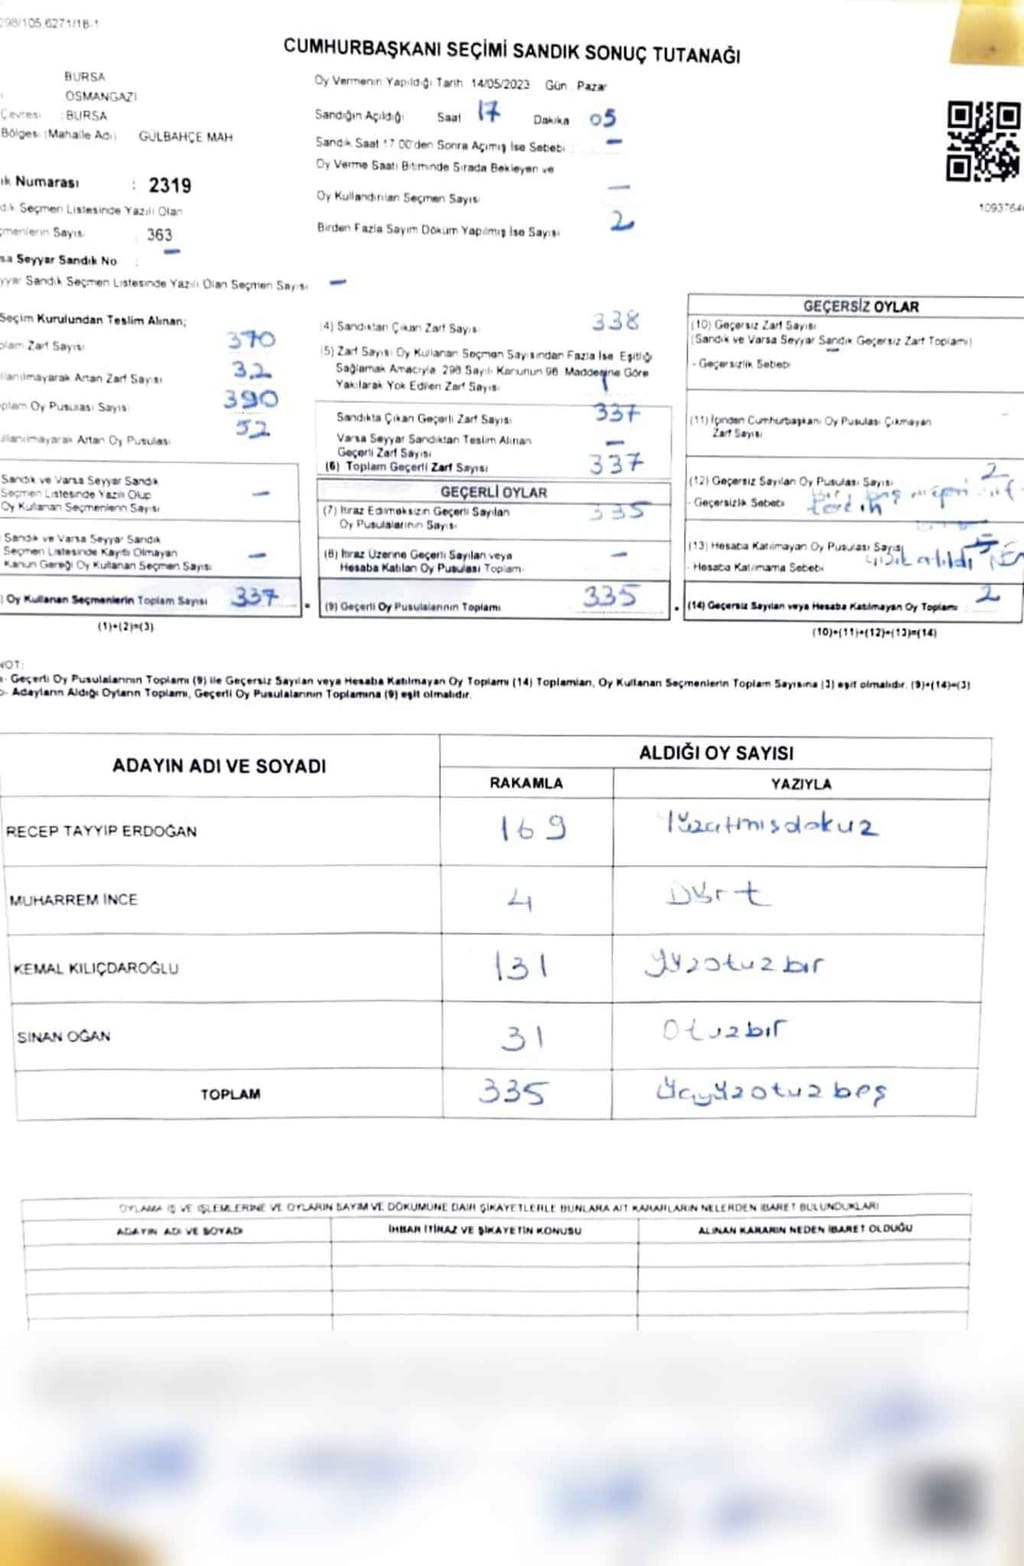 298/105.6271/1B-1
CUMHURBAŞKANI SEÇİMİ SANDIK SONUÇ TUTANAĞI
BURSA
OSMANGAZİ
Çevresi : BURSA
Bölgesi (Mahalle Adı) GÜLBAHÇE MAH
Oy Vermenin Yapıldığı Tarih 14/05/2023 Gün Pazar
Sandığın Açıldığı Saat 17 Dakika 05
Sandık Saat 17:00'den Sonra Açılmış İse Sebebi -
Oy Verme Saati Bitiminde Sırada Bekleyen ve
Oy Kullandırılan Seçmen Sayısı -
Birden Fazla Sayım Döküm Yapılmış İse Sayısı 2
ık Numarası : 2319
dık Seçmen Listesinde Yazılı Olan
çmenlerin Sayısı 363
sa Seyyar Sandık No : -
yyar Sandık Seçmen Listesinde Yazılı Olan Seçmen Sayısı -
Seçim Kurulundan Teslim Alınan;
plam Zarf Sayısı 370
llanılmayarak Artan Zarf Sayısı 32
plam Oy Pusulası Sayısı 390
ullanılmayarak Artan Oy Pusulası 52
Sandık ve Varsa Seyyar Sandık
Seçmen Listesinde Yazılı Olup
Oy Kullanan Seçmenlerin Sayısı -
Sandık ve Varsa Seyyar Sandık
Seçmen Listesinde Kayıtlı Olmayan
Kanun Gereği Oy Kullanan Seçmen Sayısı -
Oy Kullanan Seçmenlerin Toplam Sayısı 337
(1)+(2)=(3)
(4) Sandıktan Çıkan Zarf Sayısı 338
(5) Zarf Sayısı Oy Kullanan Seçmen Sayısından Fazla İse Eşitliği
Sağlamak Amacıyla 298 Sayılı Kanunun 98. Maddesine Göre
Yakılarak Yok Edilen Zarf Sayısı 1
Sandıkta Çıkan Geçerli Zarf Sayısı 337
Varsa Seyyar Sandıktan Teslim Alınan
Geçerli Zarf Sayısı -
(6) Toplam Geçerli Zarf Sayısı 337
GEÇERLİ OYLAR
(7) İtiraz Edilmeksizin Geçerli Sayılan
Oy Pusulalarının Sayısı 335
(8) İtiraz Üzerine Geçerli Sayılan veya
Hesaba Katılan Oy Pusulası Toplamı -
(9) Geçerli Oy Pusulalarının Toplamı 335
GEÇERSİZ OYLAR
(10) Geçersiz Zarf Sayısı
(Sandık ve Varsa Seyyar Sandık Geçersiz Zarf Toplamı) -
- Geçersizlik Sebebi
(11) İçinden Cumhurbaşkanı Oy Pusulası Çıkmayan
Zarf Sayısı
(12) Geçersiz Sayılan Oy Pusulası Sayısı 2
- Geçersizlik Sebebi
(13) Hesaba Katılmayan Oy Pusulası Sayısı
- Hesaba Katılmama Sebebi
(14) Geçersiz Sayılan veya Hesaba Katılmayan Oy Toplamı 2
(10)+(11)+(12)+(13)=(14)
1093764
NOT:
a- Geçerli Oy Pusulalarının Toplamı (9) ile Geçersiz Sayılan veya Hesaba Katılmayan Oy Toplamı (14) Toplamları, Oy Kullanan Seçmenlerin Toplam Sayısına (3) eşit olmalıdır. (9)+(14)=(3)
b- Adayların Aldığı Oyların Toplamı, Geçerli Oy Pusulalarının Toplamına (9) eşit olmalıdır.
ADAYIN ADI VE SOYADI ALDIĞI OY SAYISI
RAKAMLA YAZIYLA
RECEP TAYYİP ERDOĞAN 169 Yüzatmışdokuz
MUHARREM İNCE 4 Dört
KEMAL KILIÇDAROĞLU 131 Yüzotuzbir
SİNAN OĞAN 31 Otuzbir
TOPLAM 335 Üçyüzotuzbeş
OYLAMA İŞ VE İŞLEMLERİNE VE OYLARIN SAYIM VE DÖKÜMÜNE DAİR ŞİKAYETLERLE BUNLARA AİT KARARLARIN NELERDEN İBARET BULUNDUKLARI
ADAYIN ADI VE SOYADI İHBAR İTİRAZ VE ŞİKAYETİN KONUSU ALINAN KARARIN NEDEN İBARET OLDUĞU